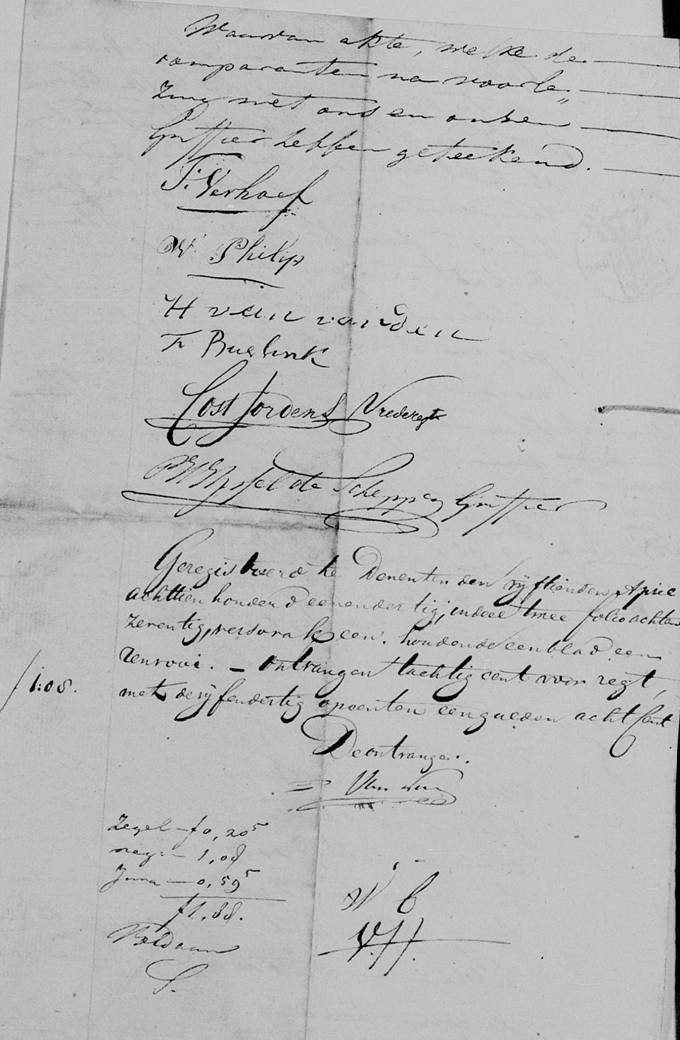 Waarvan akte, welke de
comparanten na voorle„
zing met ons en onzen
Griffier hebben geteekend.
T. Verhoef
W. Philip
H van vaarden
Cost Jordens Vrederegter
IJssel de Schepper Griffier
Geregistreerd te Deventer den vijftienden April
achttien honderd eenendertig, in deel twee folio achten
zeventig, verso vak een. houdende een blad een
renvooi. – ontvangen tachtig cent voor regt,
/ 1:08. met de vijfendertig opcenten een gulden acht cent
De ontvanger.
Zegel – f 0,20⁵
reg: – 1,08
– 0,59⁵
f 1,88.
Voldaan
S.
W B
V.H.